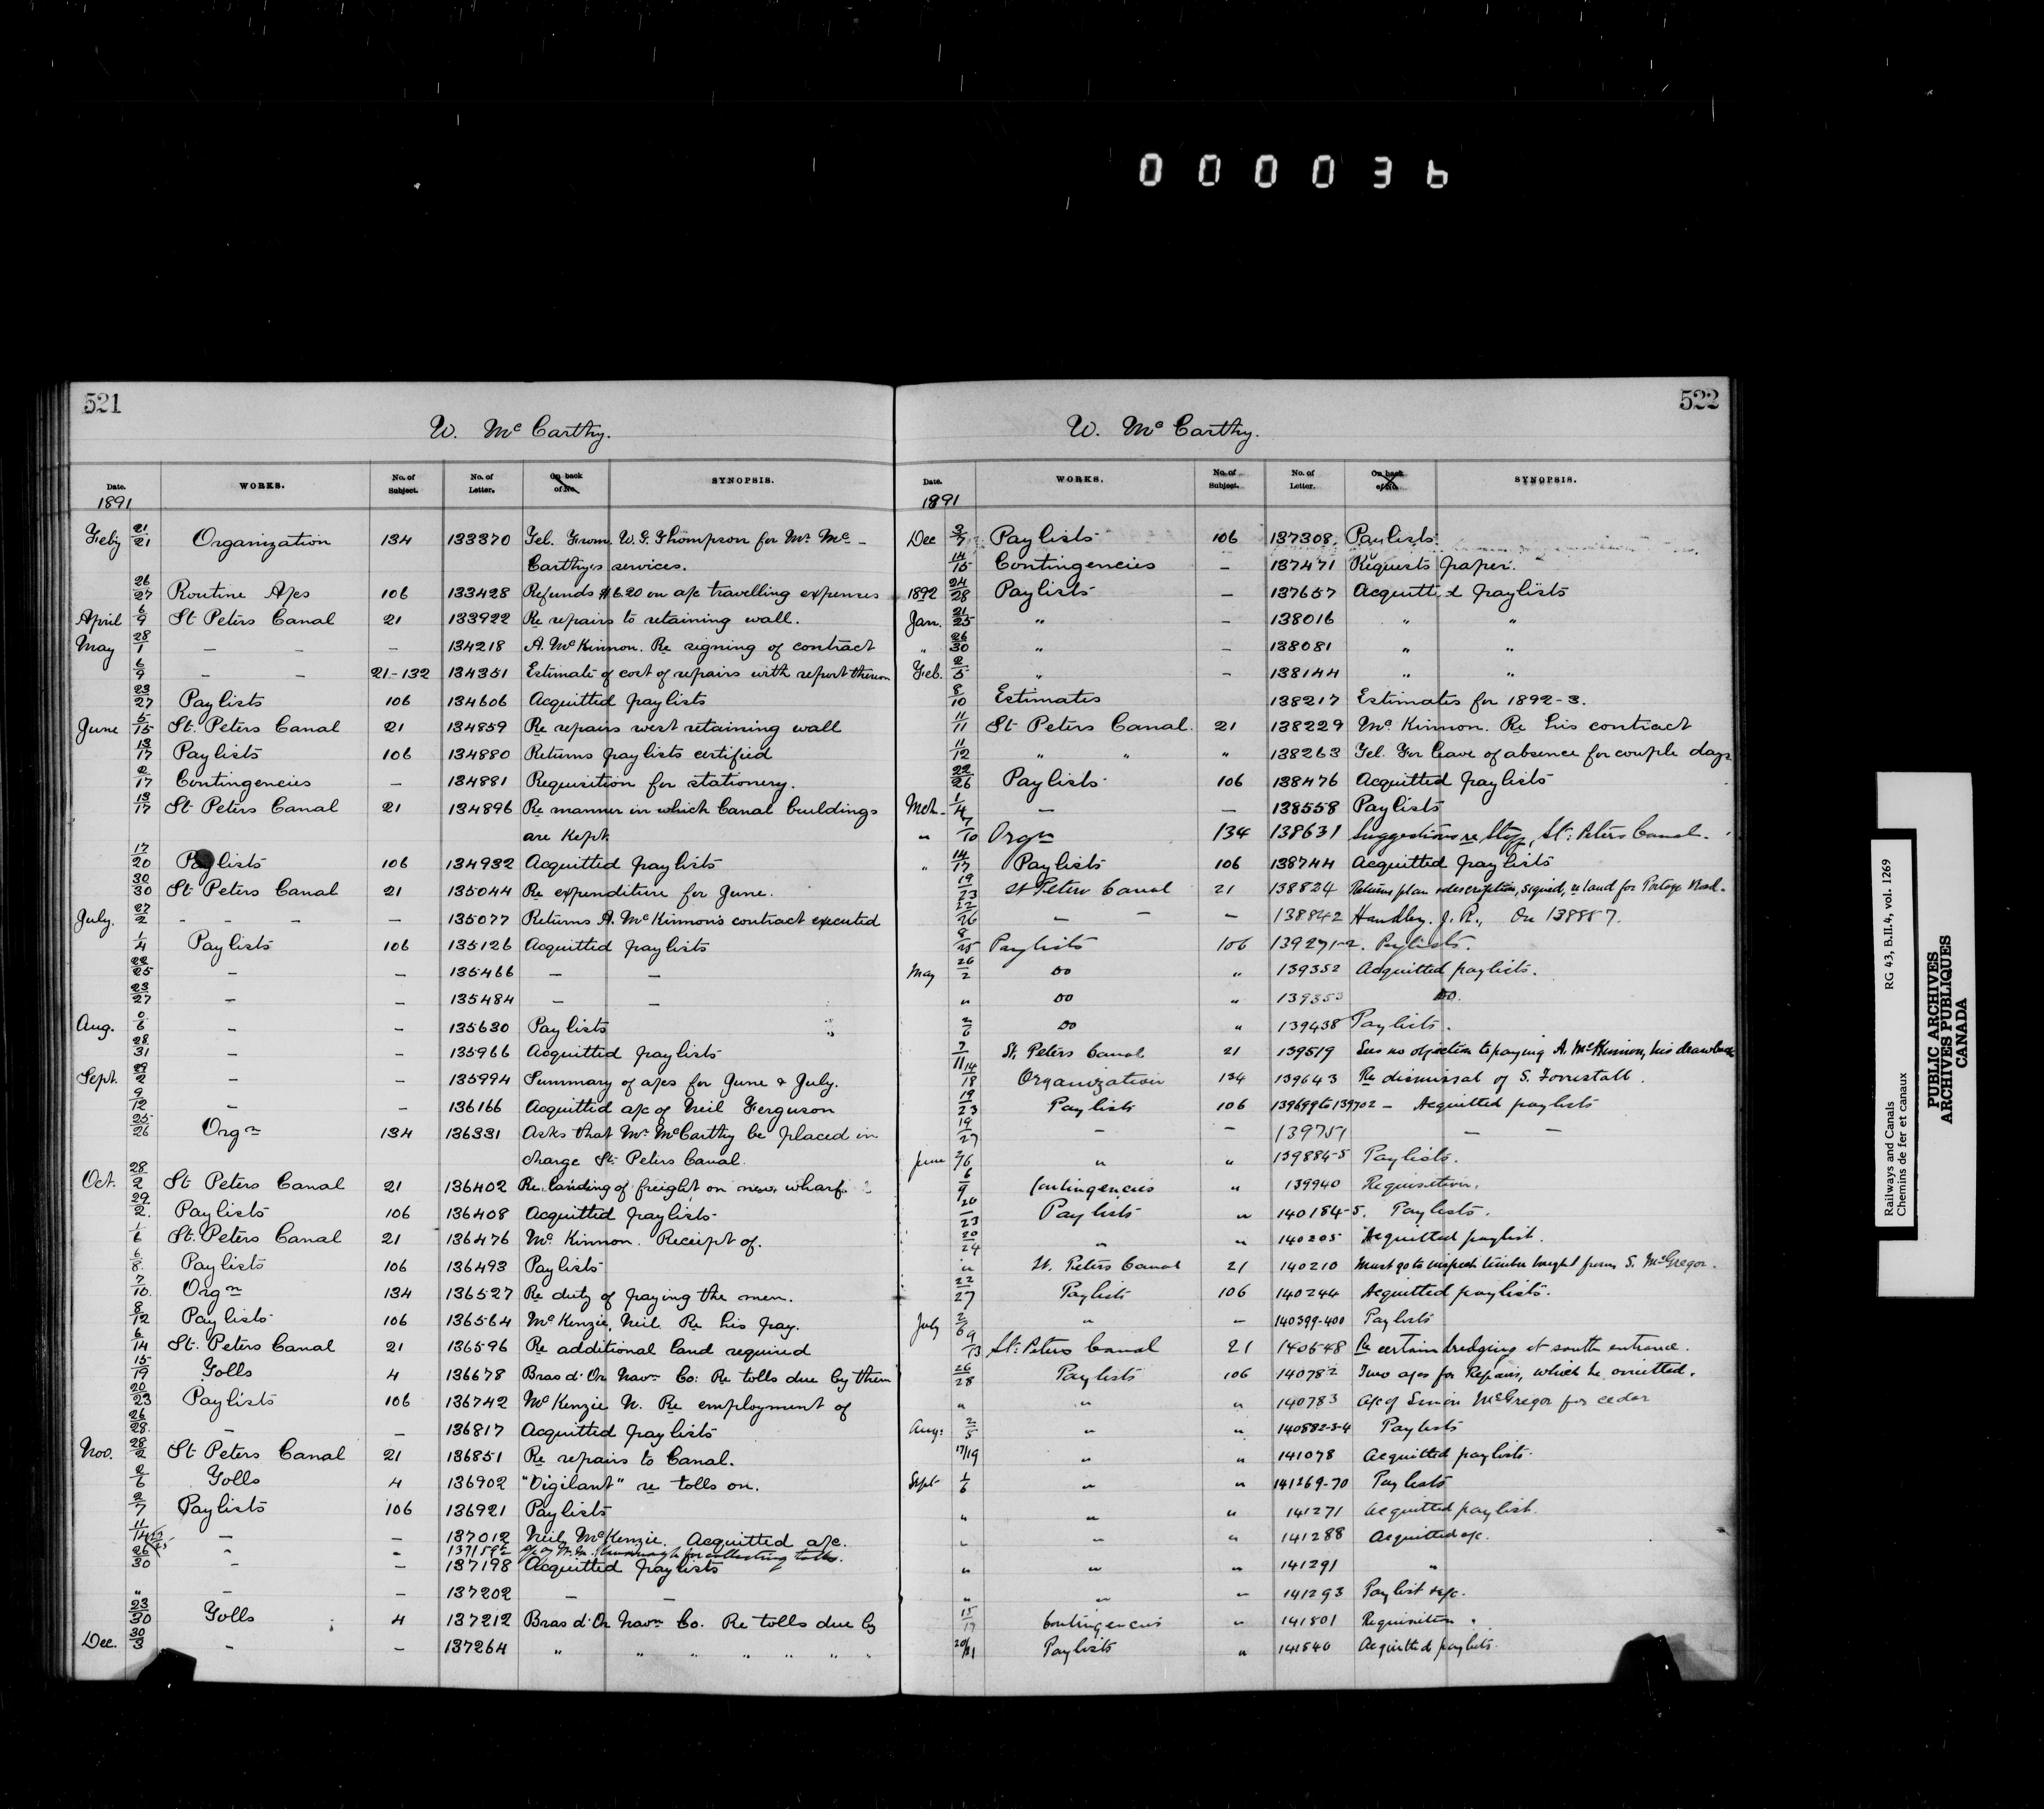 000036
521
W. McCarthy.
Date. WORKS. No. of Subject. No. of Letter. On back of No. SYNOPSIS.
1891
Feby 21/21 Organization 134 133370 Tel. From W. G. Thompson for Mr. Mc-
Carthy's services.
26/27 Routine A/cs 106 133428 Refunds $6.20 on a/c travelling expenses
April 6/9 St. Peters Canal 21 133922 Re repairs to retaining wall.
May 28/1 — — — 134218 A. McKinnon. Re signing of contract
6/9 — — 21-132 134351 Estimate of cost of repairs with report thereon
23/27 Paylists 106 134606 Acquitted paylists
June 5/15 St. Peters Canal 21 134859 Re repairs west retaining wall
13/17 Paylists 106 134880 Returns paylists certified
2/17 Contingencies — 134881 Requisition for stationery.
13/17 St Peters Canal 21 134896 Re manner in which Canal buildings
are kept.
17/20 Paylists 106 134932 Acquitted paylists
30/30 St. Peters Canal 21 135044 Re expenditure for June.
July. 27/2 - - - — 135077 Returns A. McKinnon's contract executed
1/4 Paylists 106 135126 Acquitted paylists
22/25 — — 135466 — —
23/27 — — 135484 — —
Aug. 0/6 — — 135630 Paylists
28/31 — — 135966 Acquitted paylists
Sept. 29/2 — — 135994 Summary of a/cs for June & July.
9/12 — — 136166 Acquitted a/c of Neil Ferguson
25/26 Orgn 134 136331 Asks that Mr. McCarthy be placed in
charge St. Peters Canal.
Oct. 28/2 St Peters Canal 21 136402 Re landing of freight on new wharf.
29/2. Paylists 106 136408 Acquitted paylists
1/6 St. Peters Canal 21 136476 McKinnon. Receipt of.
6/8. Paylists 106 136493 Paylists
7/10. Orgn 134 136527 Re duty of paying the men.
8/12 Paylists 106 136564 McKenzie, Neil. Re his pay.
6/14 St. Peters Canal 21 136596 Re additional land required
15/19 Tolls 4 136678 Bras d'Or Navn Co: Re tolls due by them
20/23 Paylists 106 136742 McKenzie N. Re employment of
26/28. — — 136817 Acquitted paylists
Nov. 28/2 St Peters Canal 21 136851 Re repairs to Canal.
2/6 Tolls 4 136902 "Vigilant" re tolls on.
2/7 Paylists 106 136921 Paylists
11/14 — — 137012 Neil McKenzie. Acquitted a/c.
for collecting tolls.
26/30 — — 137198 Acquitted paylists
" — — 137202 — —
23/30 Tolls 4 137212 Bras d'Or Navn Co. Re tolls due by
Dec. 30/3 — — 137264 " " " " " " "
522
W. McCarthy.
Date. WORKS. No. of Subject. No. of Letter. On back of No. SYNOPSIS.
1891
Dec 3/7 Paylists 106 137308. Paylists.
14/15 Contingencies — 137471 Requests paper.
1892 24/28 Paylists — 137657 Acquitted paylists
Jan. 21/25 " — 138016 " "
" 26/30 " — 138081 " "
Feb. 2/5 " — 138144 " "
8/10 Estimates 138217 Estimates for 1892-3.
11/11 St Peters Canal. 21 138229 McKinnon. Re his contract
11/12 " " " 138263 Tel. For leave of absence for couple days
22/26 Paylists 106 138476 Acquitted paylists
Mch. 1/4 — — 138558 Paylists
" 7/10 Orgn 134 138631 Suggestions re Staff, St. Peters Canal.
" 14/17 Paylists 106 138744 Acquitted paylists
19/23 St Peters Canal 21 138824 Returns plan & description, signed, re land for Portage Road.
22/26 — — — 138842 Handley. J. R., On 138887.
8/25 Paylists 106 139271-2. Paylists.
May 26/2 DO " 139352 Acquitted paylists.
" DO " 139353 DO.
2/6 DO " 139438 Paylists.
7/11 St. Peters Canal 21 139519 Sees no objection to paying A. McKinnon, his drawback
14/18 Organization 134 139643 Re dismissal of S. Forrestall.
19/23 Paylists 106 139699 to 139702 — Acquitted paylists
19/27 — — 139751 — —
June 2/6 " " 139884-5 Paylists.
6/9 Contingencies " 139940 Requisition.
20/23 Paylists " 140184-5. Paylists.
20/24 " " 140205 Acquitted paylist.
" St. Peters Canal 21 140210 Must go to inspect timber bought from S. McGregor.
22/27 Paylists 106 140244 Acquitted paylists.
July 2/6 " — 140399-400 Paylists
9/13 St. Peters Canal 21 140548 Re certain dredging at south entrance.
26/28 Paylists 106 140782 Two a/cs for Repairs, which he omitted.
" " " 140783 a/c of Simon McGregor for cedar
Aug: 2/5 " " 140882-3-4 Paylists
17/19 " " 141078 Acquitted paylists.
Sept 1/6 " " 141269-70 Paylists
" " " 141271 Acquitted paylist.
" " " 141288 Acquitted a/c.
" " " 141291 "
" " " 141293 Paylist & a/c.
15/17 Contingencies " 141501 Requisition.
Paylists " 141540 Acquitted paylists.
Railways and Canals RG 43, B.II.4, vol. 1269
Chemins de fer et canaux
PUBLIC ARCHIVES
ARCHIVES PUBLIQUES
CANADA